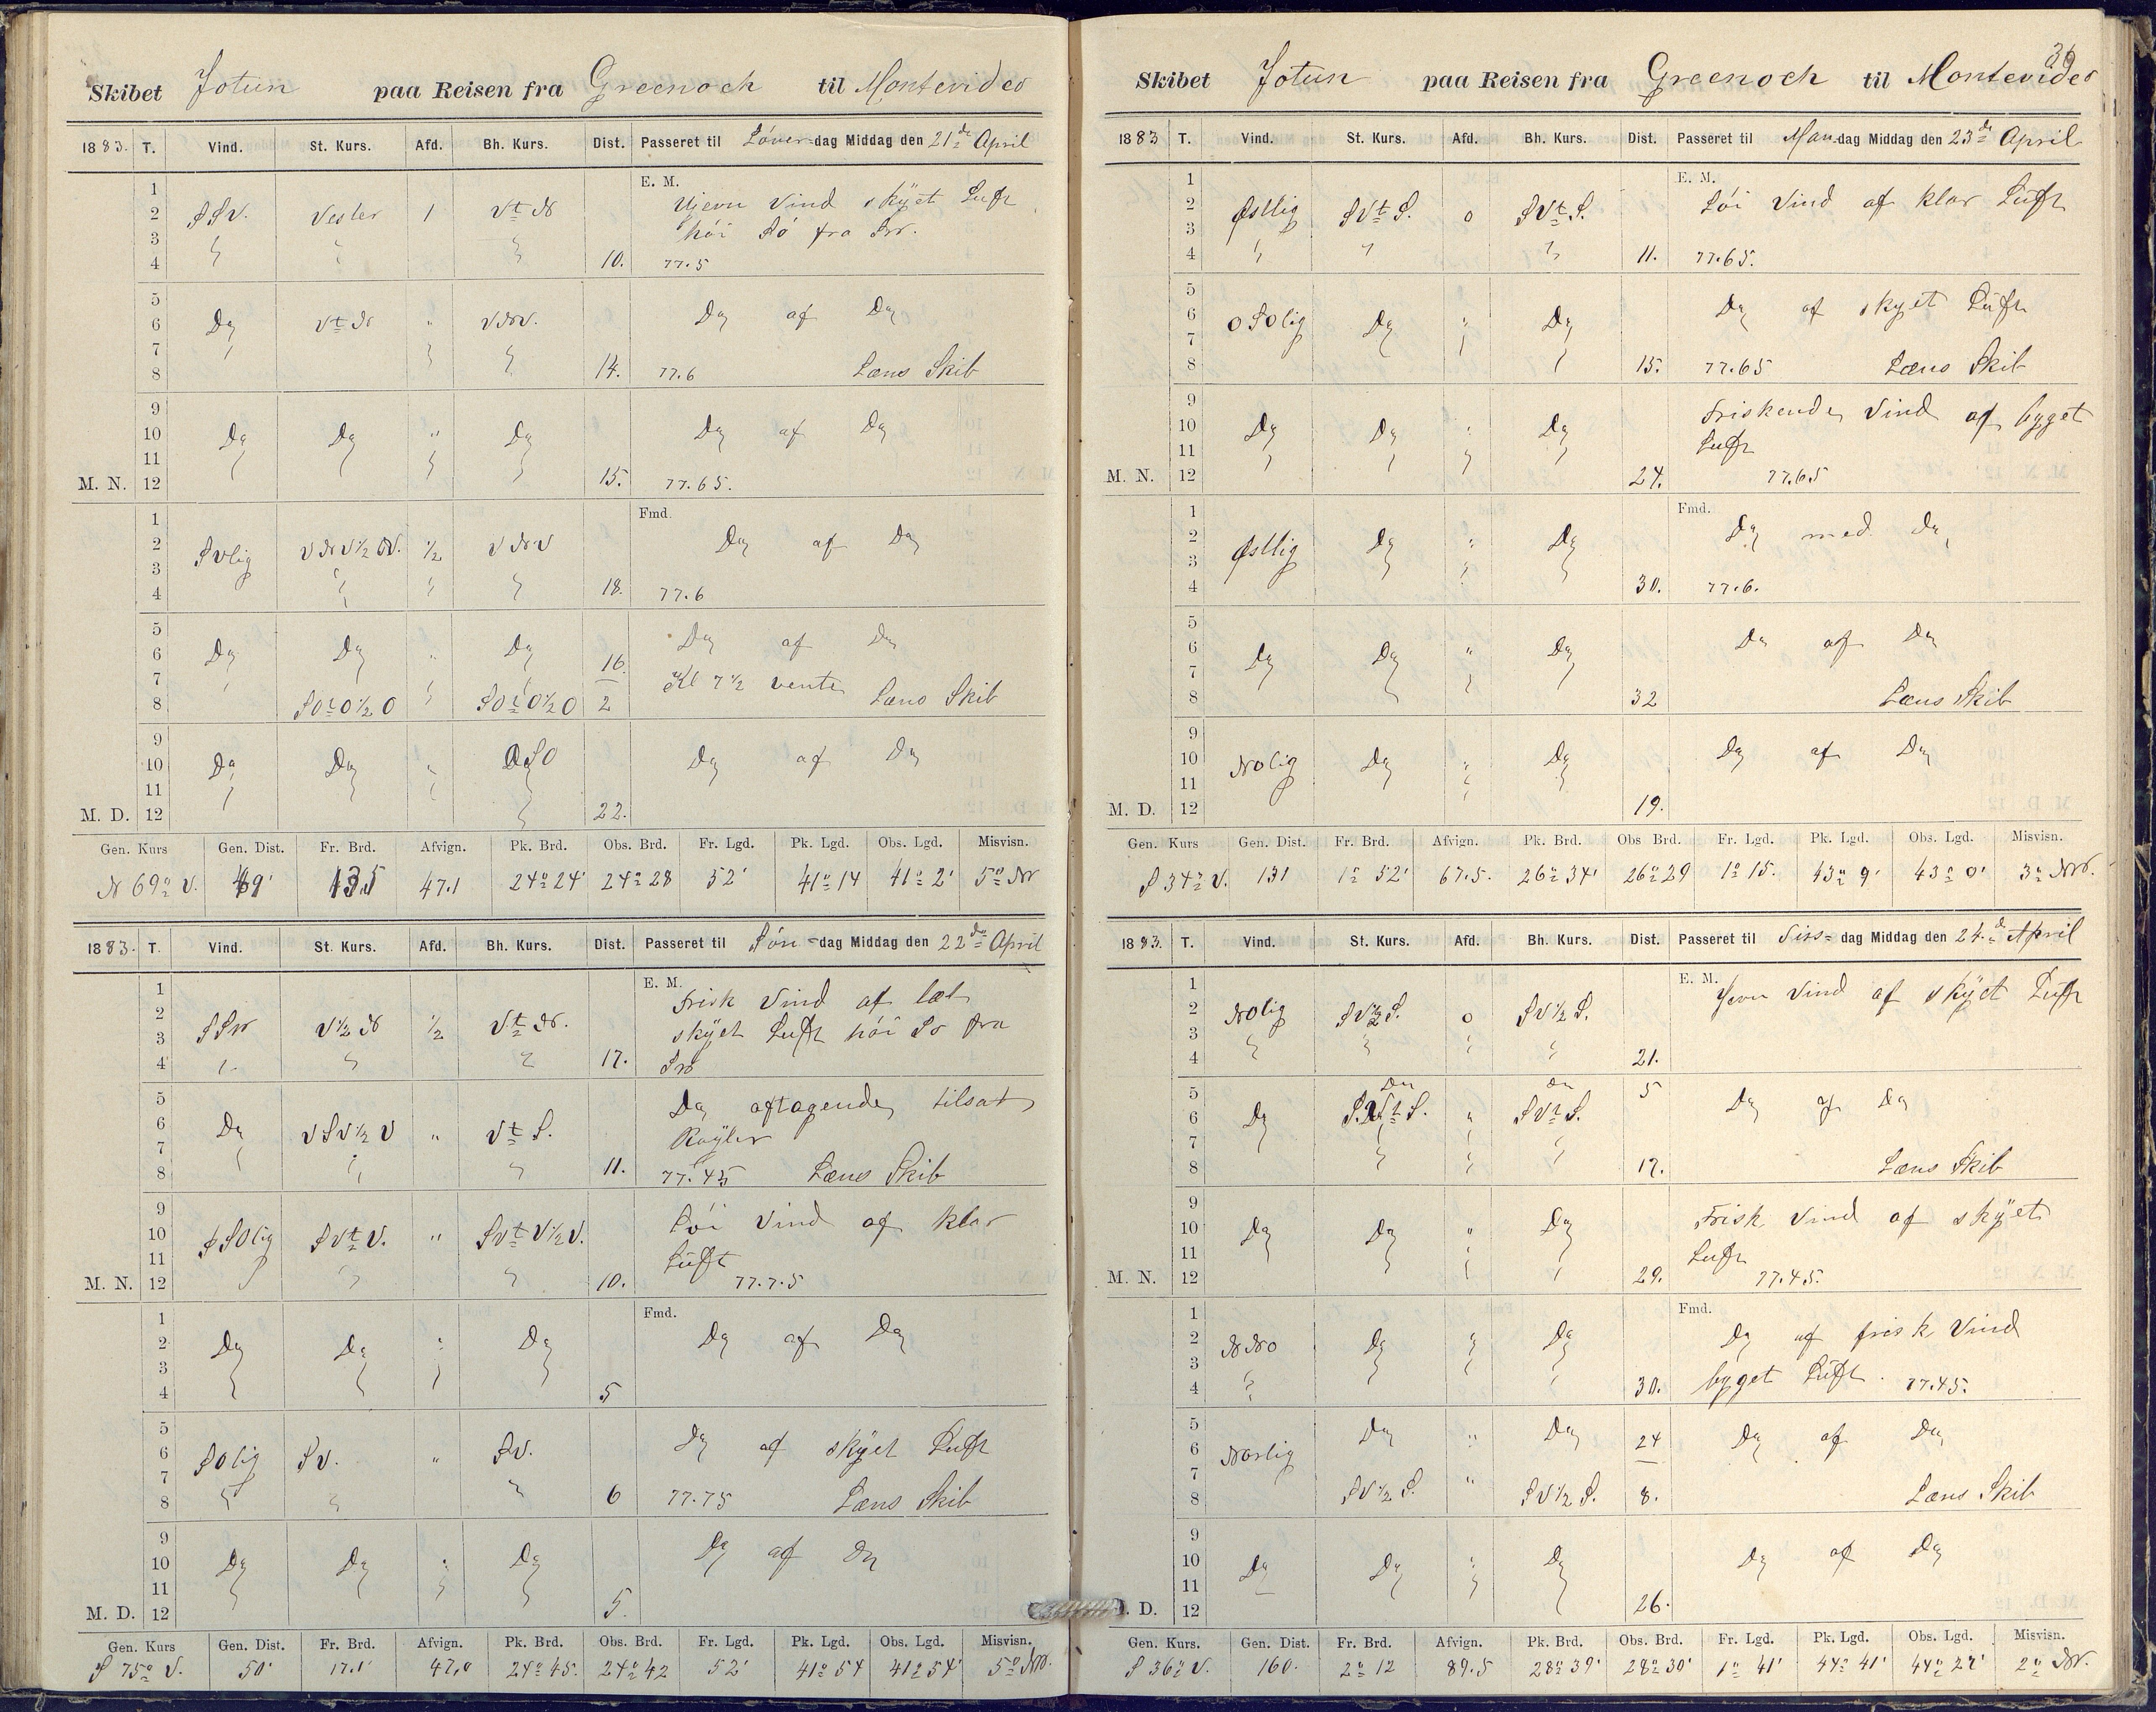 Skibet Jotun paa Reisen fra Greenock til Montevideo
1883. T. Vind. St. Kurs. Afd. Bh. Kurs. Dist. Passeret til Löverdag Middag den 21de April
E. M.
1
2 SSV. Vester 1 Vt N Ujevn Vind skÿet Luft
3 höi Sö fra SV.
4 10. 77.5
5
6 Do Vt N " VNV. Do af Do
7
8 14. 77.6 Læns Skib
9
10 Do Do " Do Do af Do
11
M. N. 12 15. 77.65.
Fmd.
1
2 SVlig VNV½V. ½ VNV Do af Do
3
4 18. 77.6
5
6 Do Do " Do 16 Do af Do
7 Kl 7½ vente
8 SOtO½O SOtO½O 2 Læns Skib
9
10 Do Do " OSO Do af Do
11
M. D. 12 22.
Gen. Kurs Gen. Dist. Fr. Brd. Afvign. Pk. Brd. Obs. Brd. Fr. Lgd. Pk. Lgd. Obs. Lgd. Misvisn.
N 69° V. 49' 13.5 47.1 24° 24' 24° 28 52' 41° 14 41° 2' 5° NV
1883. T. Vind. St. Kurs. Afd. Bh. Kurs. Dist. Passeret til Sön-dag Middag den 22de April
E. M.
1 Frisk Vind af let
2
3 SSV V½N ½ Vt N. skÿet Luft höi Sö fra
4 17. SV
5 Do aftagende, tilsat
6 Do VSV½V " Vt S. Röÿler
7
8 11. 77.45 Læns Skib
9
10 SSOlig SVt V. " SVt V½V. Löi Vind af klar
11 Luft
M. N. 12 10. 77.7.5
Fmd.
1
2 Do Do " Do Do af Do
3
4 5
5
6 SOlig SV. " SV. Do af skÿet Luft
7
8 6 77.75 Læns Skib
9
10 Do Do " Do Do af Do
11
M. D. 12 5.
Gen. Kurs Gen. Dist. Fr. Brd. Afvign. Pk. Brd. Obs. Brd. Fr. Lgd. Pk. Lgd. Obs. Lgd. Misvisn.
S 75° V. 50' 17.1' 47.0 24° 45. 24° 42 52' 41° 54 41° 54' 5° NV.
36
Skibet Jotun paa Reisen fra Greenock til Montevideo
1883 T. Vind. St. Kurs. Afd. Bh. Kurs. Dist. Passeret til Man-dag Middag den 23de April
E. M.
1
2 Östlig SVt S. 0 SVt S. Löi Vind af klar Luft
3
4 11. 77.65.
5
6 OSOlig Do " Do Do af skyet Luft
7
8 15. 77.65 Læns Skib
9
10 Do Do " Do Friskende Vind af byget
11 Luft
M. N. 12 24. 77.65
Fmd.
1
2 Östlig Do " Do Do med Do
3
4 30. 77.6.
5
6 Do Do " Do Do af Do
7
8 32 Læns Skib
9
10 NOlig Do " Do Do af Do
11
M. D. 12 19.
Gen. Kurs Gen. Dist. Fr. Brd. Afvign. Pk. Brd. Obs Brd. Fr. Lgd. Pk. Lgd. Obs. Lgd. Misvisn.
S 34° V. 131 1° 52' 67.5. 26° 34' 26° 29 1° 15. 43° 9' 43° 0' 3° NV.
1883. T. Vind. St. Kurs. Afd. Bh. Kurs. Dist. Passeret til Tirs-dag Middag den 24.de April
E. M.
1 Jevn Vind af skÿet Luft
2 NOlig SV½S. 0 SV½S.
3
4 21.
5 Do Do 5
6 Do SVt S. " SVt S. Do af Do
7
8 17. Læns Skib
9
10 Do Do " Do Frisk Vind af skÿet
11 Luft
M. N. 12 29. 77.45.
Fmd.
1
2 NNO Do " Do Do af frisk Vind
3
4 30. byget Luft. 77.45.
5
6 Norlig Do " Do 24 Do af Do
7
8 SV½S. " SV½S. 8. Læns Skib
9
10 Do Do " Do Do af Do
11
. D. 12 26.
Gen. Kurs. Gen. Dist. Fr. Brd. Afvign. Pk. Brd. Obs. Brd. Fr. Lgd. Pk. Lgd. Obs. Lgd. Misvisn.
S 36° V. 160. 2° 12 89.5 28° 39' 28° 30' 1° 41' 44° 41' 44° 27' 2° NV.